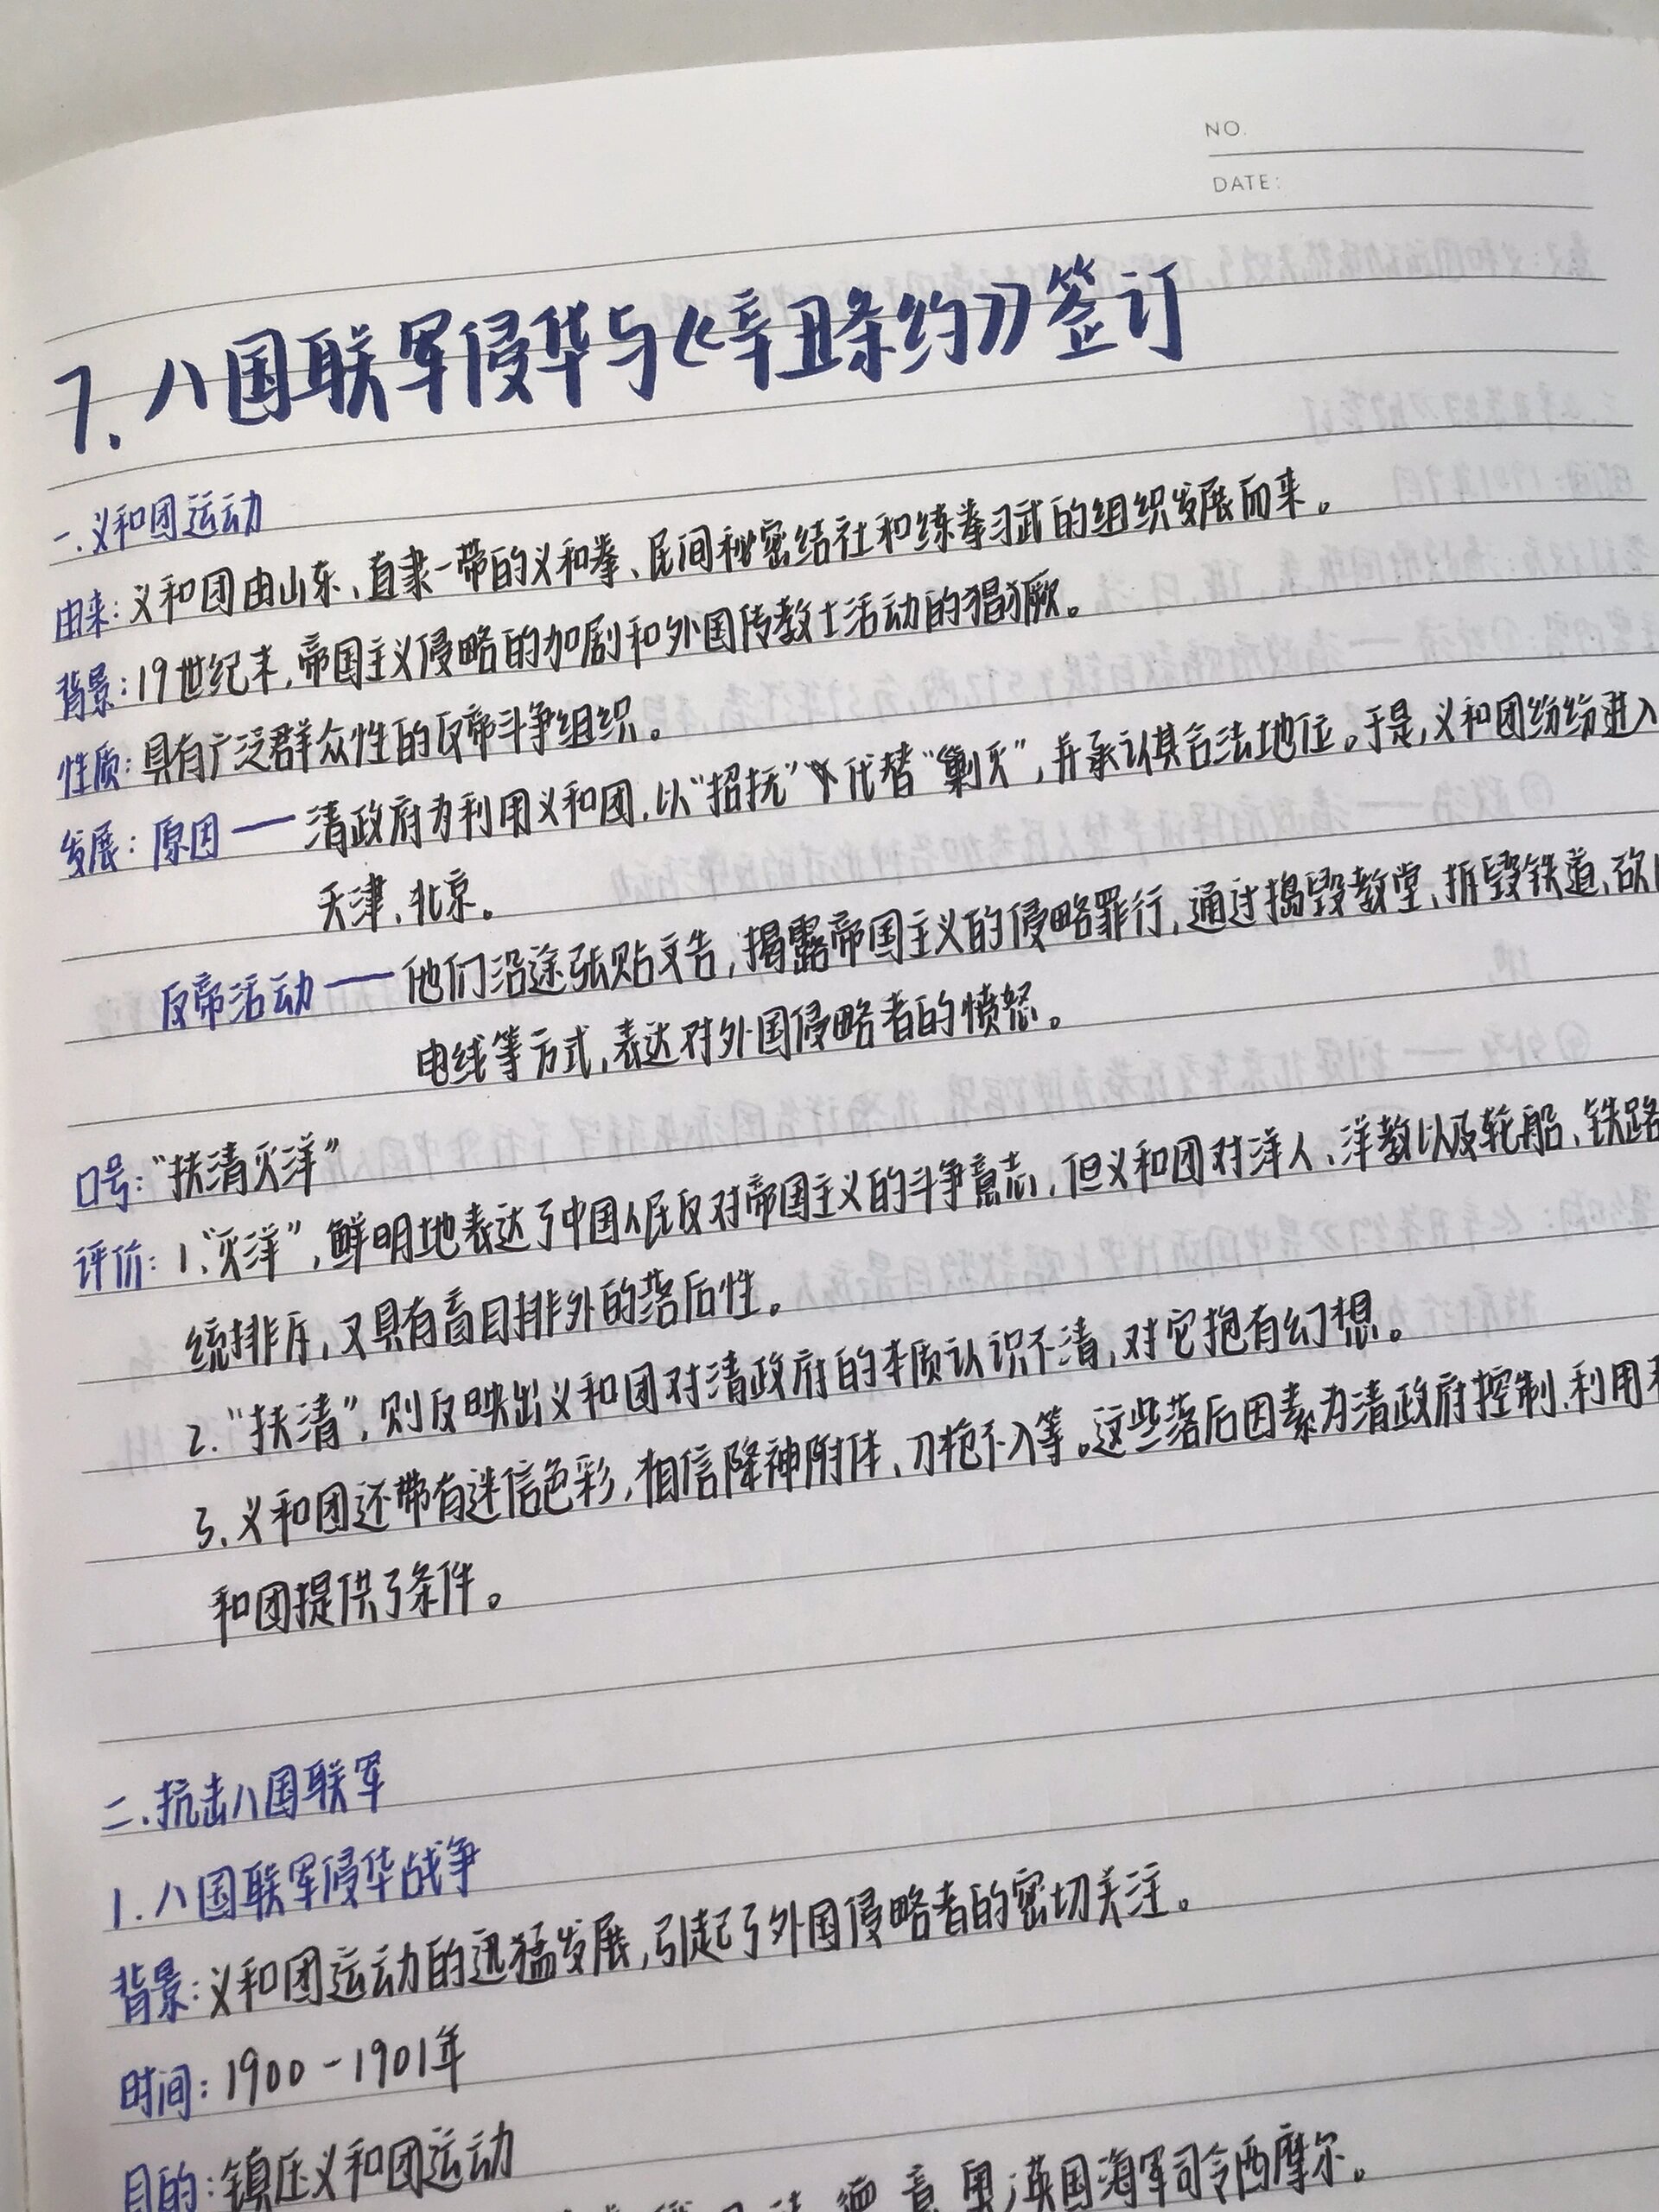 NO.
DATE:
7.八国联军侵华与《辛丑条约》签订
一.义和团运动
由来:义和团由山东、直隶一带的义和拳、民间秘密结社和练拳习武的组织发展而来。
背景:19世纪末,帝国主义侵略的加剧和外国传教士活动的猖獗。
性质:具有广泛群众性的反帝斗争组织。
发展:原因——清政府为利用义和团,以“招抚”代替“剿灭”,并承认其合法地位。于是,义和团纷纷进入
天津、北京。
反帝活动——他们沿途张贴文告,揭露帝国主义的侵略罪行,通过捣毁教堂、拆毁铁道、砍
电线等方式,表达对外国侵略者的愤怒。
口号:“扶清灭洋”
评价:1.“灭洋”,鲜明地表达了中国人民反对帝国主义的斗争意志,但义和团对洋人、洋教以及轮船、铁路
统排斥,又具有盲目排外的落后性。
2.“扶清”,则反映出义和团对清政府的本质认识不清,对它抱有幻想。
3.义和团还带有迷信色彩,相信降神附体、刀枪不入等。这些落后因素为清政府控制、利用
和团提供了条件。
二.抗击八国联军
1.八国联军侵华战争
背景:义和团运动的迅猛发展,引起了外国侵略者的密切关注。
时间:1900-1901年
目的:镇压义和团运动
法、德、意、奥;英国海军司令西摩尔。